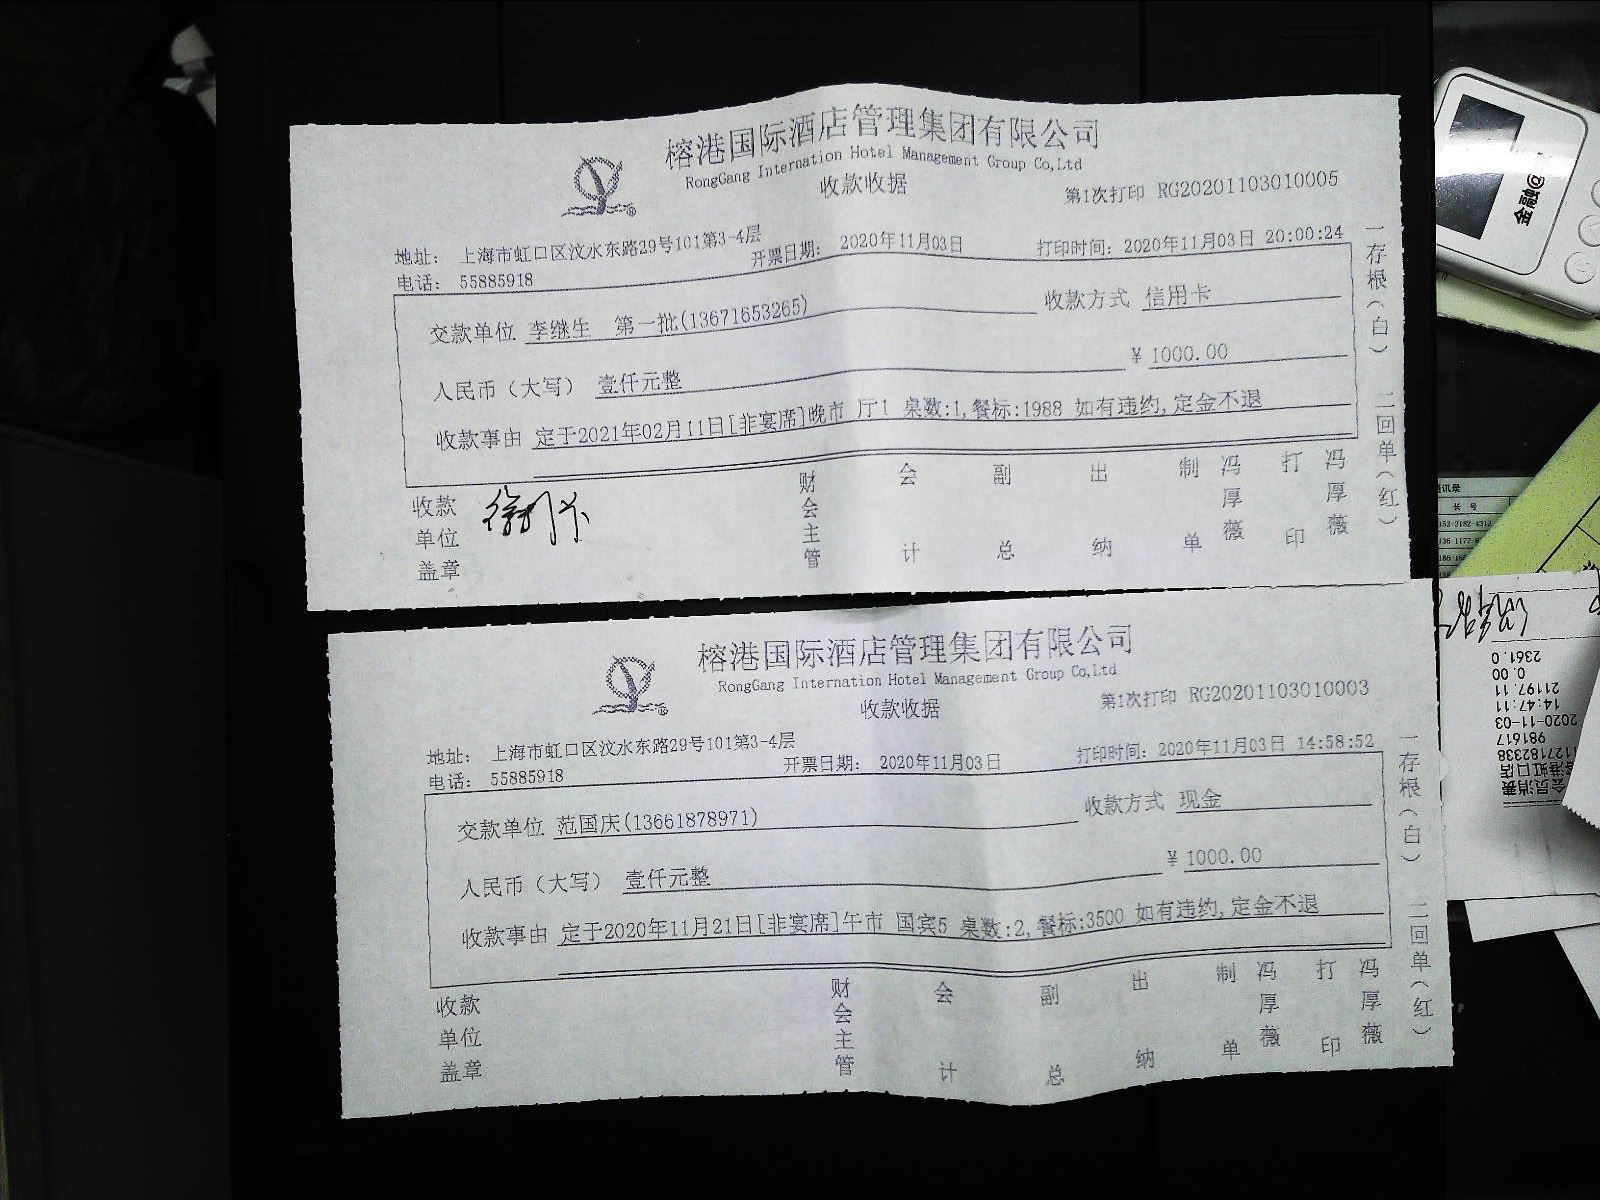 榕港国际酒店管理集团有限公司
RongGang Internation Hotel Management Group Co,Ltd
收款收据
第1次打印 RG20201103010005
地址： 上海市虹口区汶水东路29号101第3-4层
电话： 55885918
开票日期： 2020年11月03日
打印时间：2020年11月03日 20:00:24
交款单位 李继生 第一批(13671653265)
收款方式 信用卡
人民币（大写） 壹仟元整
¥ 1000.00
收款事由 定于2021年02月11日[非宴席]晚市 厅1 桌数:1,餐标:1988 如有违约,定金不退
收款单位盖章
财会主管
会计
副总
出纳
制单
冯厚薇
打印
冯厚薇
一存根（白）
二回单（红）
榕港国际酒店管理集团有限公司
RongGang Internation Hotel Management Group Co,Ltd
收款收据
第1次打印 RG20201103010003
地址： 上海市虹口区汶水东路29号101第3-4层
电话： 55885918
开票日期： 2020年11月03日
打印时间：2020年11月03日 14:58:52
交款单位 范国庆(13661878971)
收款方式 现金
人民币（大写） 壹仟元整
¥ 1000.00
收款事由 定于2020年11月21日[非宴席]午市 国宾5 桌数:2,餐标:3500 如有违约,定金不退
收款单位盖章
财会主管
会计
副总
出纳
制单
冯厚薇
打印
冯厚薇
一存根（白）
二回单（红）
金融@
讯录
长 号
会员消费
港虹口店
1127182338
981617
2020-11-03
14:47:11
21197.11
0.00
2361.0